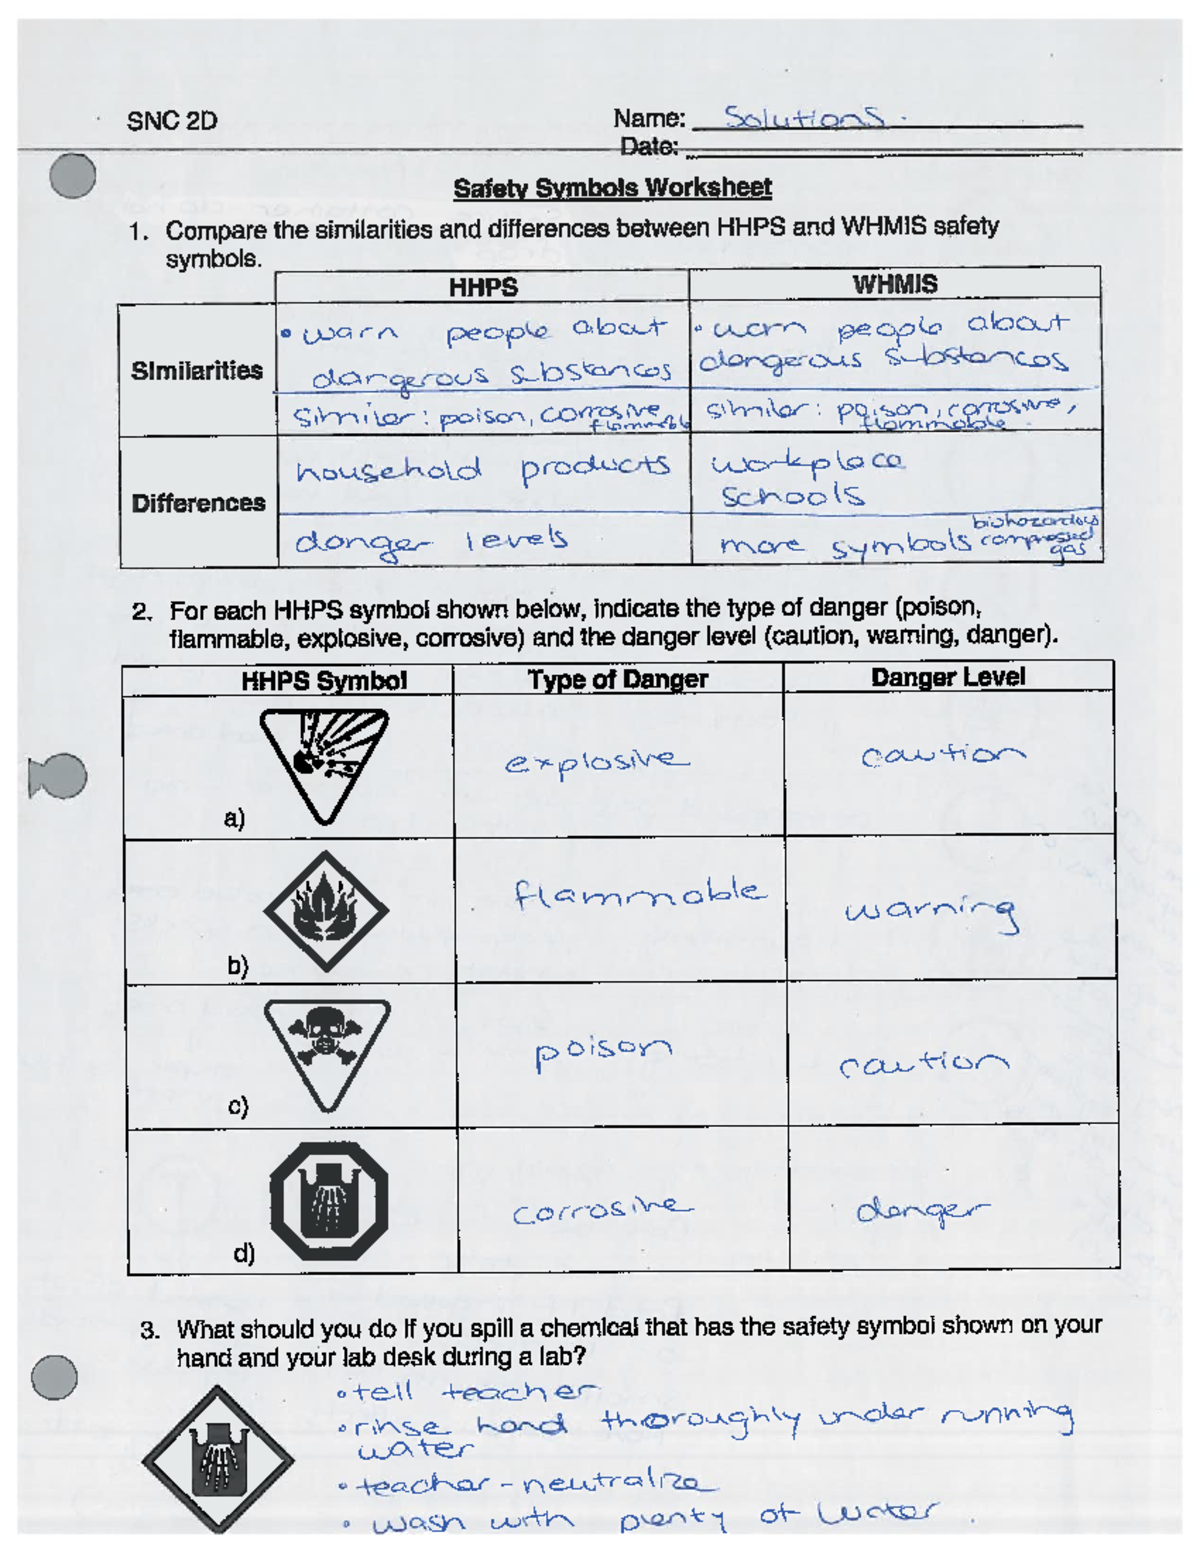 SNC 2D
Name: Solutions
Date:
Safety Symbols Worksheet
1. Compare the similarities and differences between HHPS and WHMIS safety
symbols.
HHPS WHMIS
Similarities
• warn people about
dangerous substances
similar: poison, corrosive,
flammable
• warn people about
dangerous substances
similar: poison, corrosive,
flammable
Differences
household products
danger levels
workplace
schools
more symbols biohazardous
compressed
gas
2. For each HHPS symbol shown below, indicate the type of danger (poison,
flammable, explosive, corrosive) and the danger level (caution, warning, danger).
HHPS Symbol Type of Danger Danger Level
a) explosive caution
b) flammable warning
c) poison caution
d) corrosive danger
3. What should you do if you spill a chemical that has the safety symbol shown on your
hand and your lab desk during a lab?
• tell teacher
• rinse hand thoroughly under running
water
• teacher - neutralize
• wash with plenty of water.